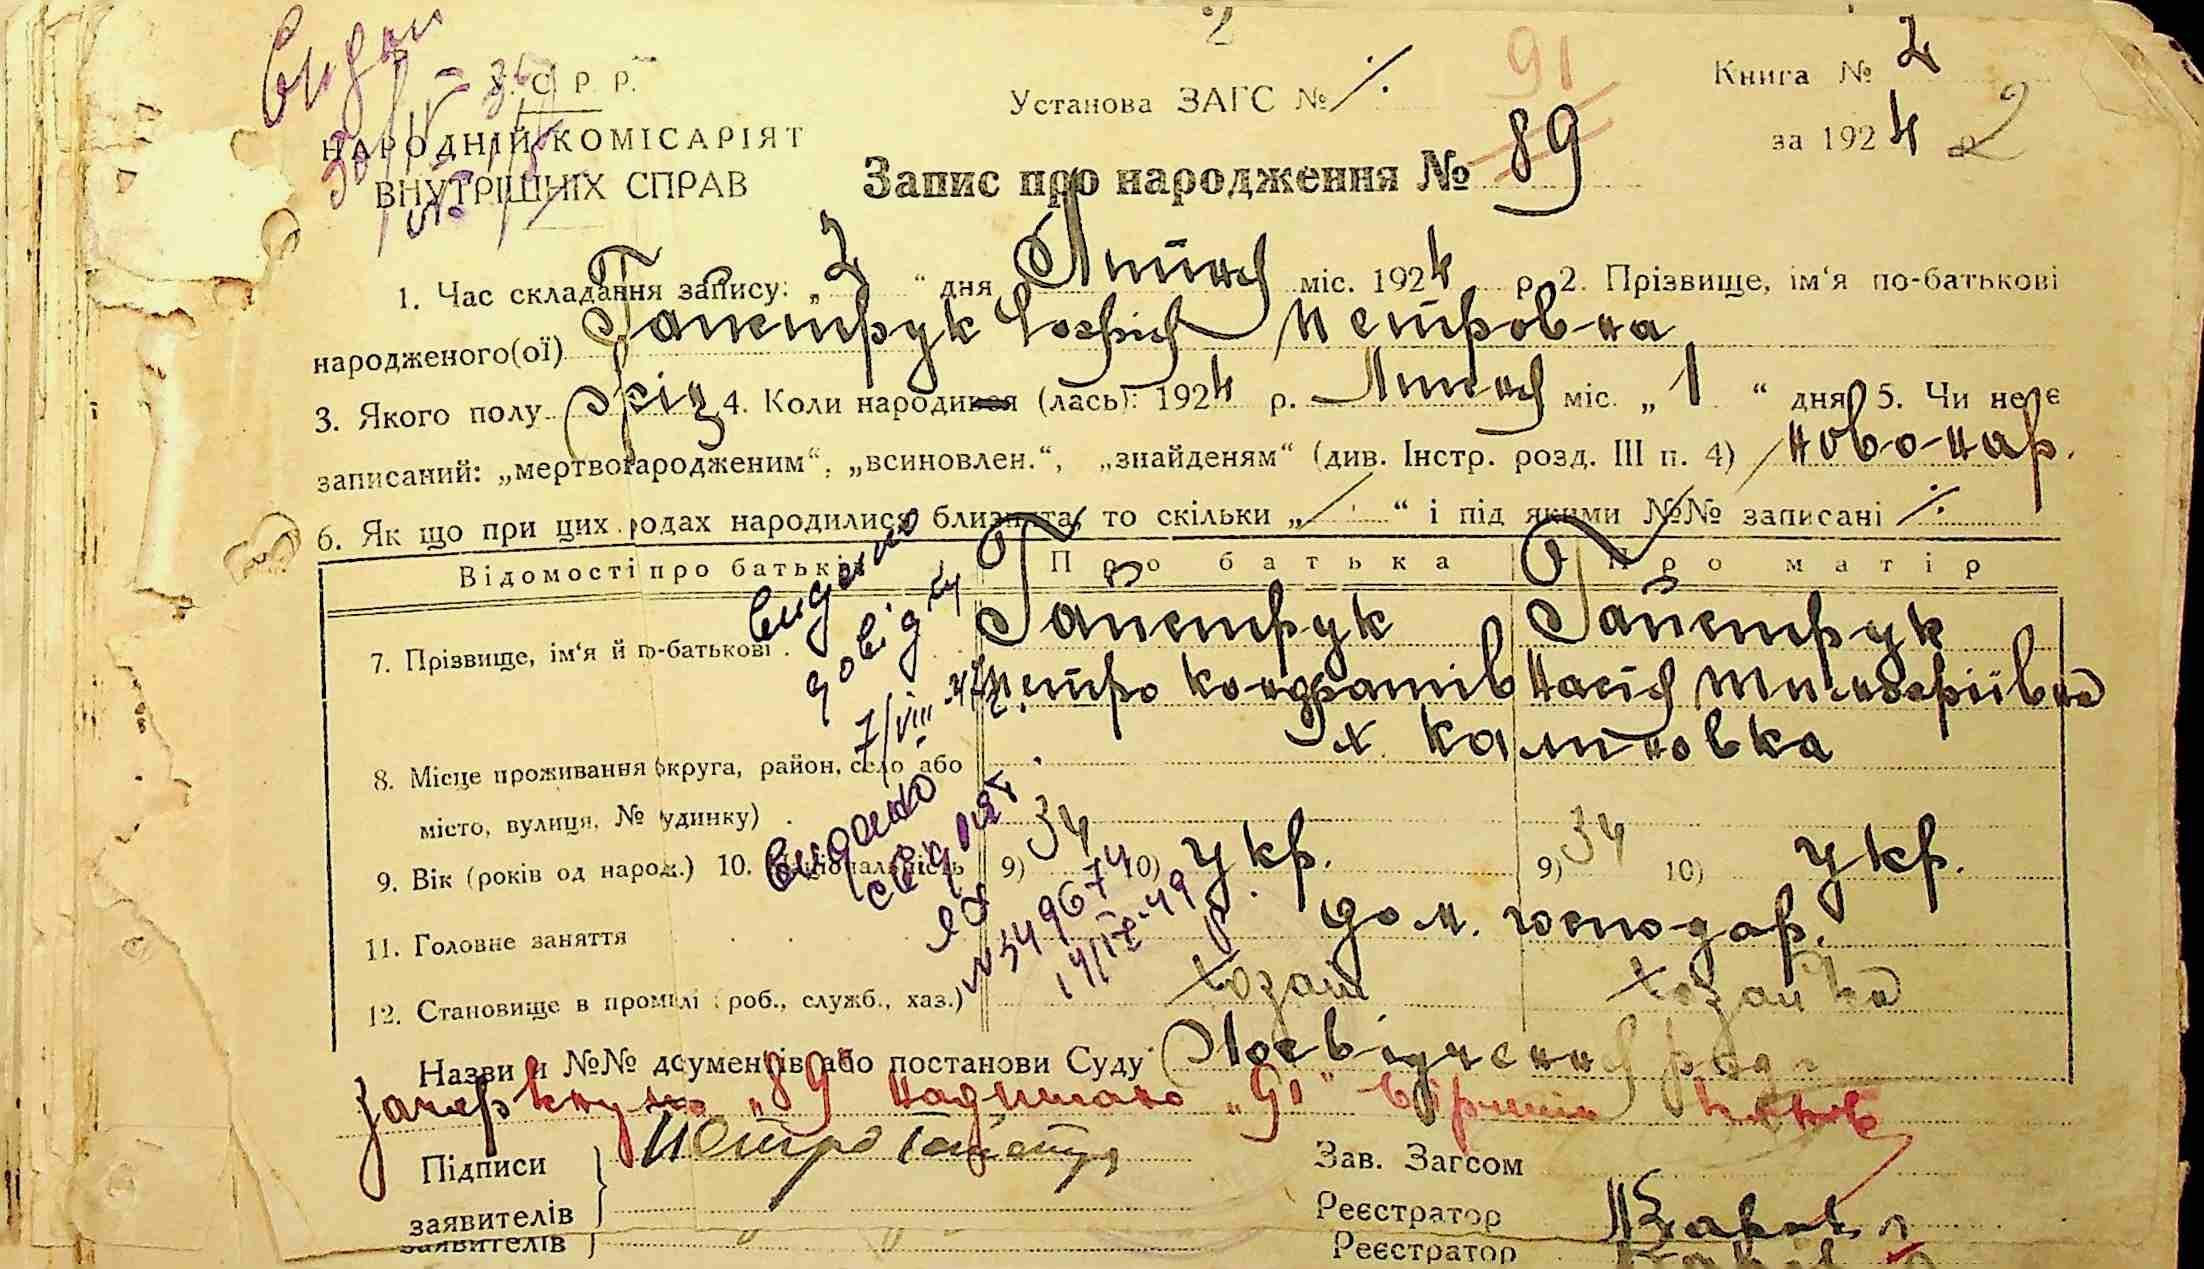 2
У. С. Р. Р.
НАРОДНІЙ КОМІСАРІЯТ
ВНУТРІШНІХ СПРАВ
Установа ЗАГС № ⁒
91
Книга № 2
за 1924 р. 2
Запис про народження № 89
1. Час складання запису: „2“ дня Липня міс. 1924 р. 2. Прізвище, ім‘я по-батькові
народженого(ої) Гапетрук Софія Петровна
3. Якого полу жін 4. Коли народився (лась): 1924 р. Липня міс. „1“ дня 5. Чи не є
записаний: „мертвонародженим“, „всиновлен.“, „знайденям“ (див. Інстр. розд. III п. 4) новонар.
6. Як що при цих родах народилися близнята, то скільки „ “ і під якими №№ записані ⁒
Відомості про батьків Про батька Про матір
7. Прізвище, ім‘я й по-батькові . Гапетрук Гапетрук
Петро Кондратів Настя
8. Місце проживання округа, район, село або
х. Калиновка
місто, вулиця, № будинку)
9. Вік (років од народ.) 10. Національність 9) 34 10) укр. 9) 34 10) укр.
11. Головне заняття дом. господар.
12. Становище в промислі (роб., служб., хаз.) хозаин хозайка
видано
довідку
7/VIII
видано
свід
№ 349674
14/IX-49 р
Назви й №№ документів або постанови Суду Посвідчення
Зачеркнуто „89“ надписано „91“ вірити
Підписи Петро
заявителів
Зав. Загсом
Реєстратор
заявителів
Реєстратор